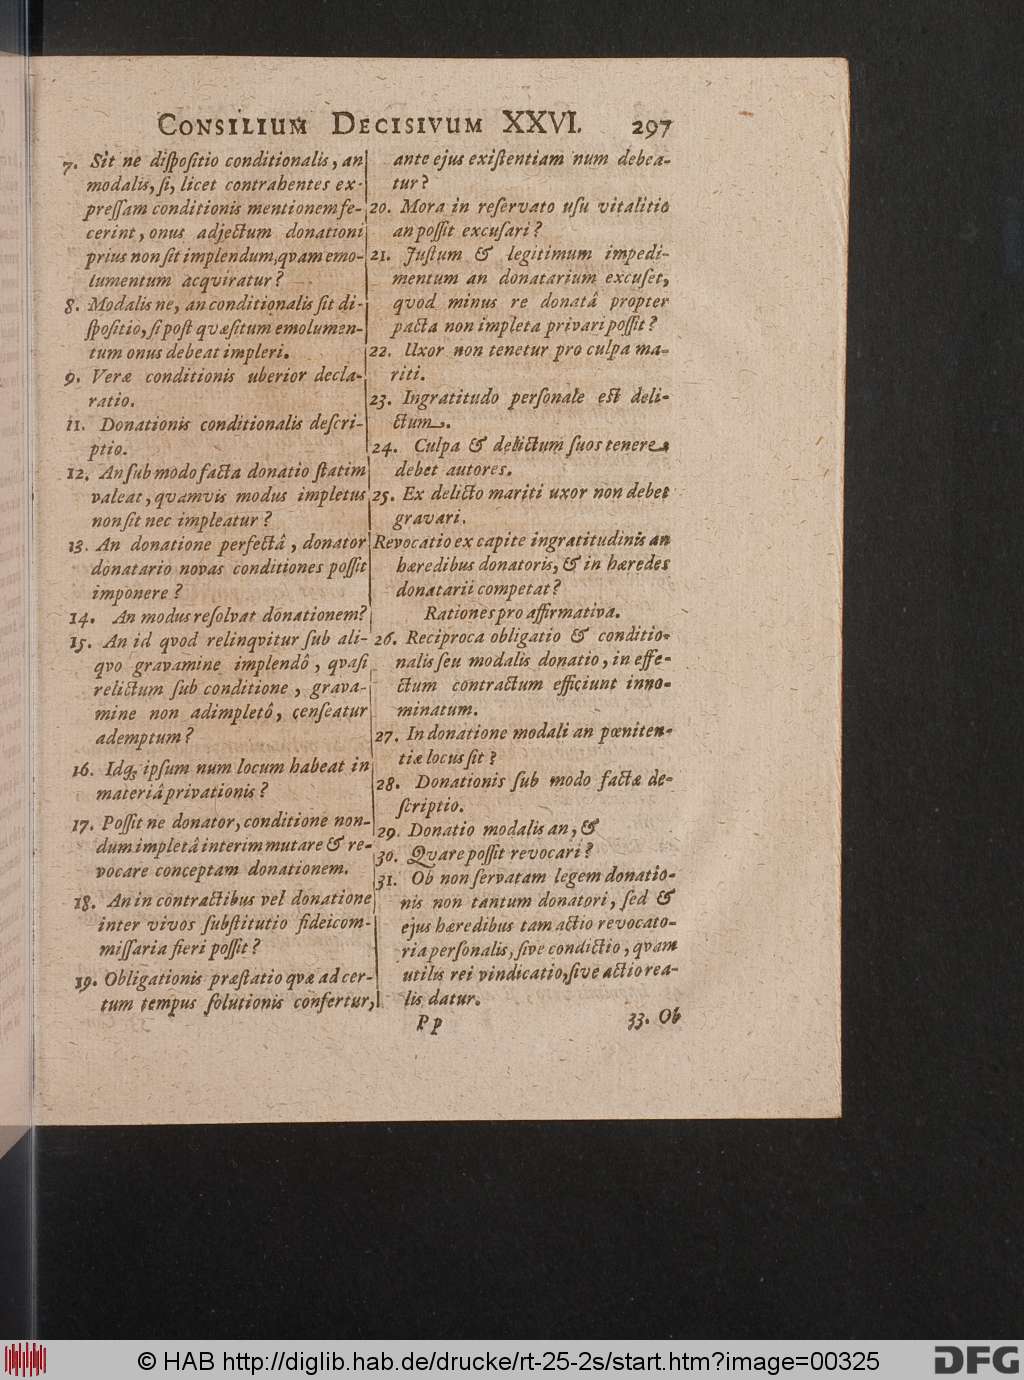 CONSILIUM DECISIVUM XXVI. 297
7. Sit ne dispositio conditionalis, an
modalis, si, licet contrahentes ex-
pressam conditionis mentionem fe-
cerint, onus adjectum donationi
prius non sit implendum, qvam emo-
lumentum acqviratur?
8. Modalis ne, an conditionalis sit di-
spositio, si post qvæsitum emolumen-
tum onus debeat impleri.
9. Veræ conditionis uberior decla-
ratio.
11. Donationis conditionalis descri-
ptio.
12. An sub modo facta donatio statim
valeat, qvamvis modus impletus
non sit nec impleatur?
13. An donatione perfectâ, donator
donatario novas conditiones possit
imponere?
14. An modus resolvat donationem?
15. An id qvod relinqvitur sub ali-
qvo gravamine implendô, qvasi
relictum sub conditione, grava-
mine non adimpletô, censeatur
ademptum?
16. Idq; ipsum num locum habeat in
materiâ privationis?
17. Possit ne donator, conditione non-
dum impletâ interim mutare & re-
vocare conceptam donationem.
18. An in contractibus vel donatione
inter vivos substitutio fideicom-
missaria fieri possit?
19. Obligationis præstatio qvæ ad cer-
tum tempus solutionis confertur,
ante ejus existentiam num debea-
tur?
20. Mora in reservato usu vitalitio
an possit excusari?
21. Justum & legitimum impedi-
mentum an donatarium excuset,
qvod minus re donatâ propter
pacta non impleta privari possit?
22. Uxor non tenetur pro culpa ma-
riti.
23. Ingratitudo personale est deli-
ctum.
24. Culpa & delictum suos tenere
debet autores.
25. Ex delicto mariti uxor non debet
gravari.
Revocatio ex capite ingratitudinis an
hæredibus donatoris, & in hæredes
donatarii competat?
Rationes pro affirmativa.
26. Reciproca obligatio & conditio-
nalis seu modalis donatio, in effe-
ctum contractum efficiunt inno-
minatum.
27. In donatione modali an pœniten-
tiæ locus sit?
28. Donationis sub modo factæ de-
scriptio.
29. Donatio modalis an, &
30. Qvare possit revocari?
31. Ob non servatam legem donatio-
nis non tantum donatori, sed &
ejus hæredibus tam actio revocato-
ria personalis, sive condictio, qvam
utilis rei vindicatio, sive actio rea-
lis datur.
Pp 33. Ob
© HAB http://diglib.hab.de/drucke/rt-25-2s/start.htm?image=00325
DFG